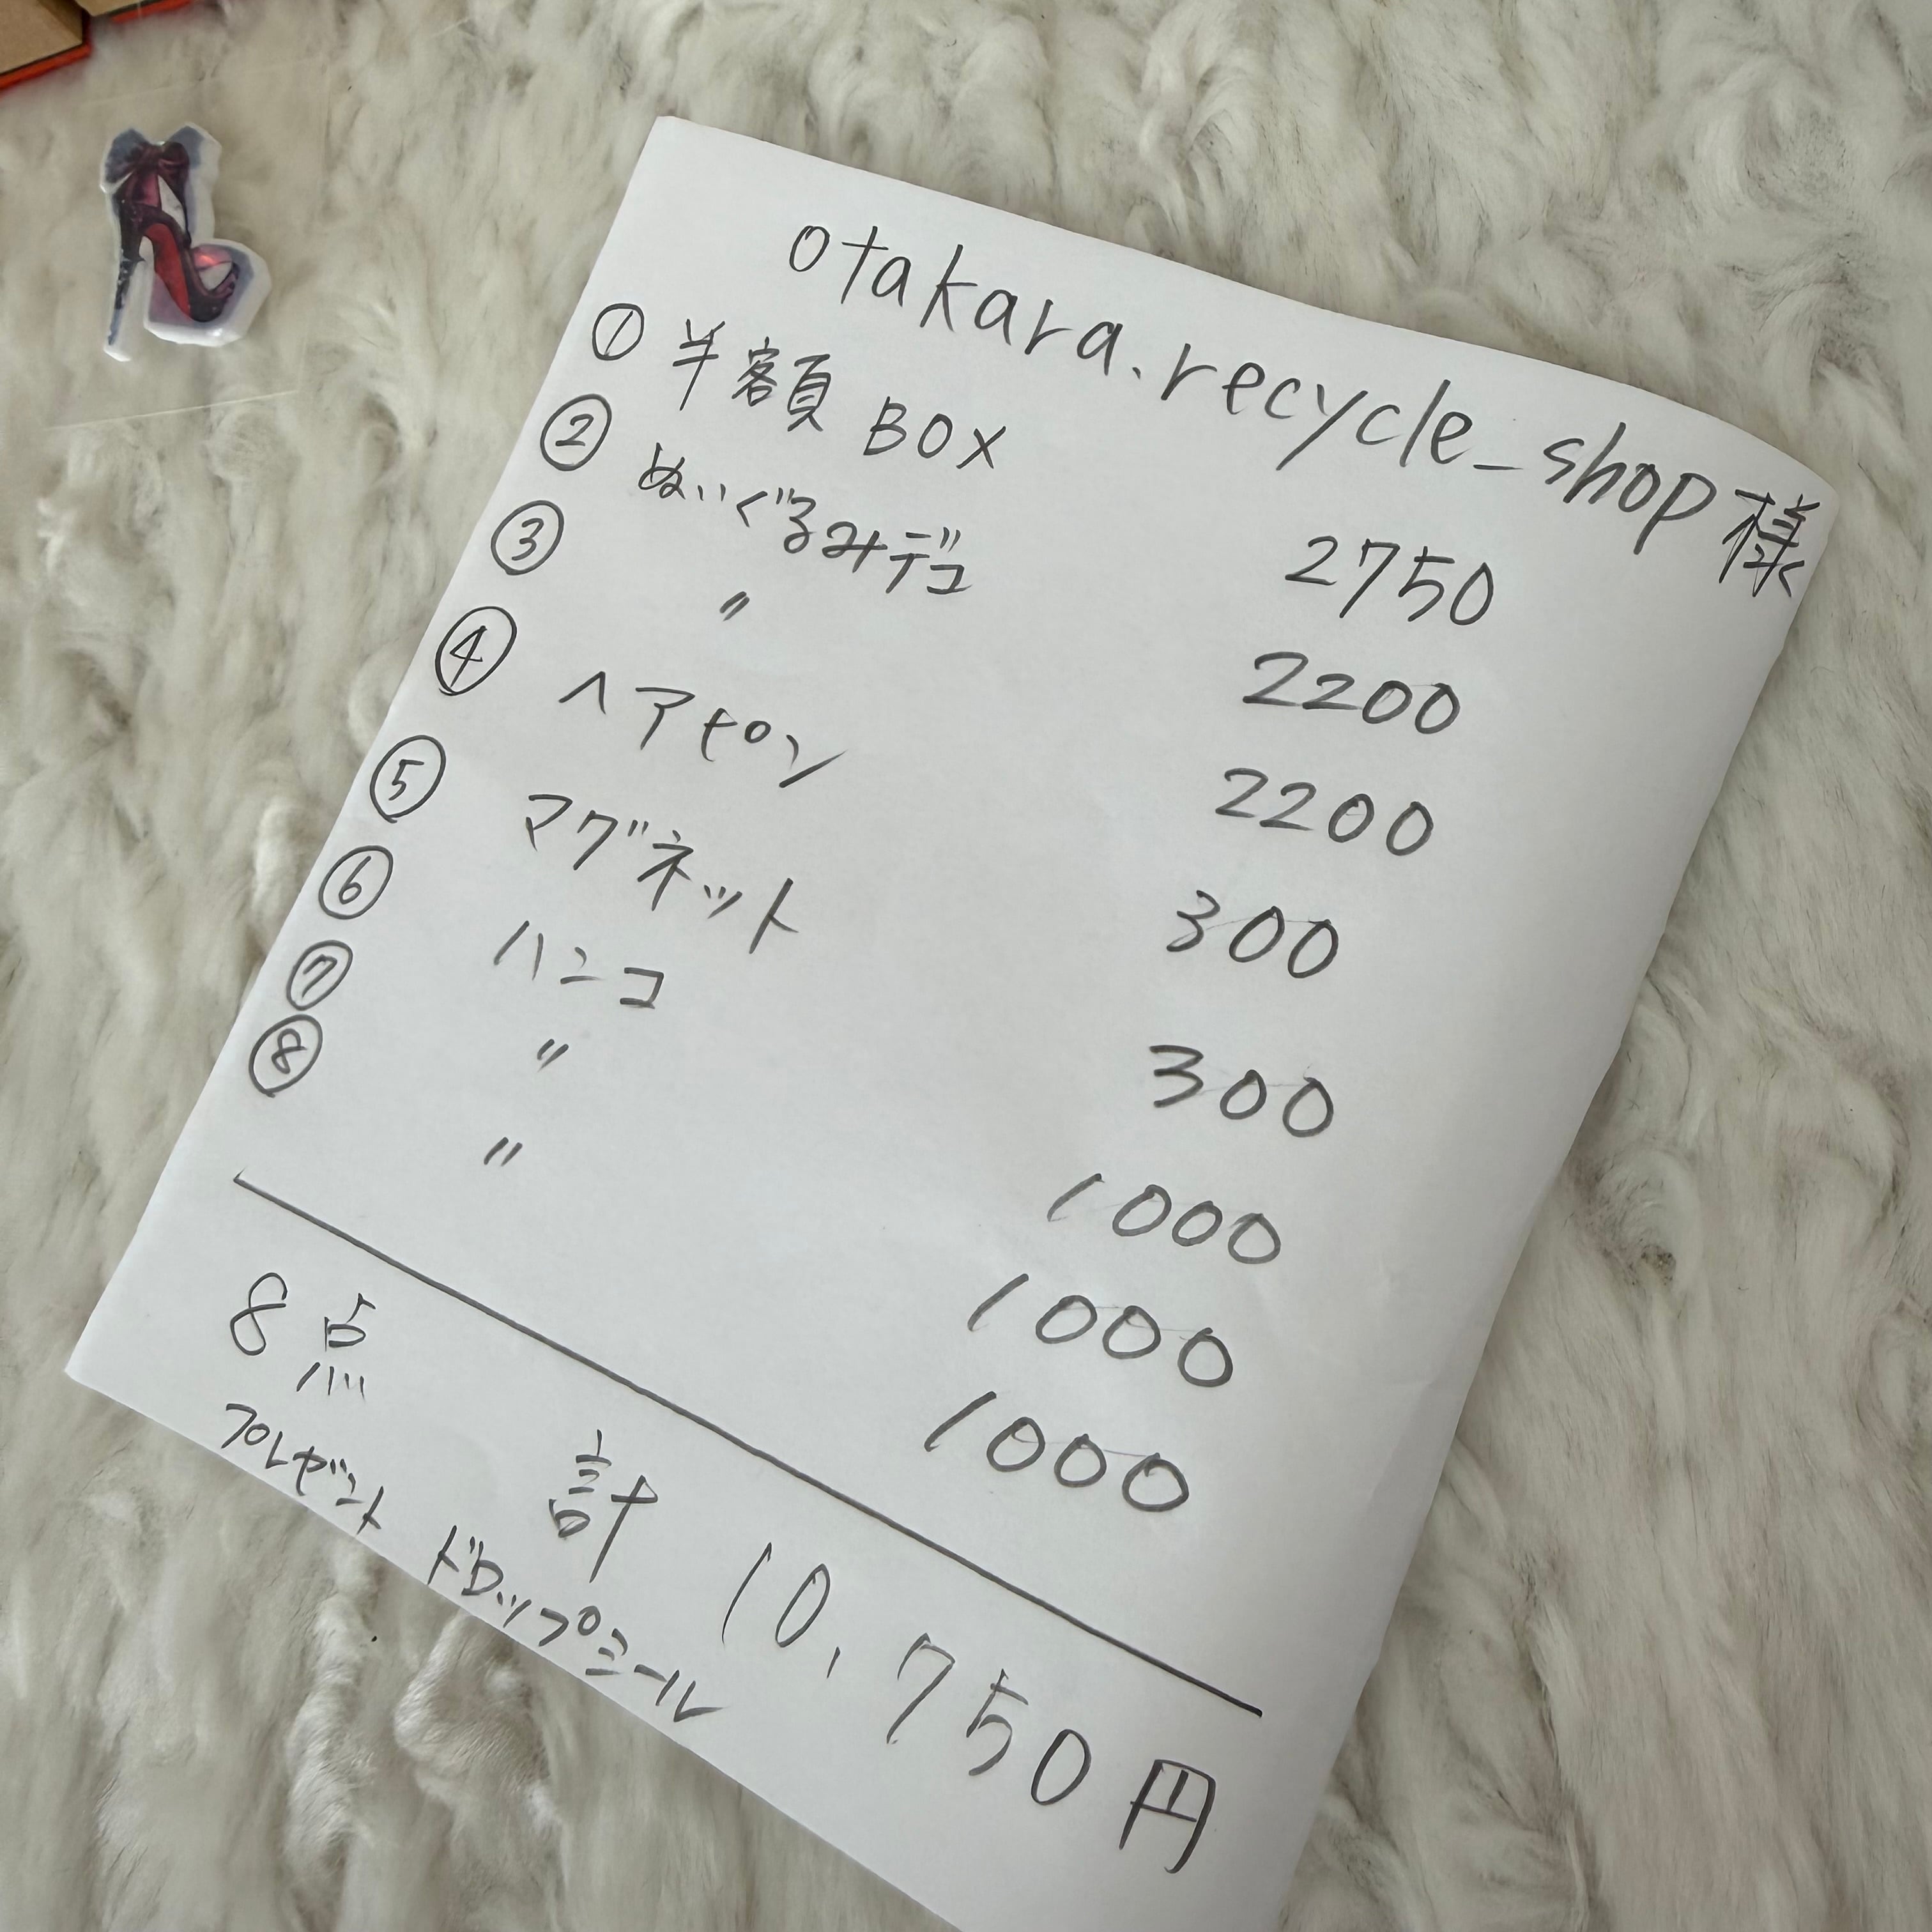 otakara.recycle_shop様
① 半額 BOX 2750
② ぬいぐるみデコ 2200
③ 〃 2200
④ ヘアピン 300
⑤ マグネット 300
⑥ ハンコ 1000
⑦ 〃 1000
⑧ 〃 1000
8点 計 10,750円
プレゼント ドロップシール